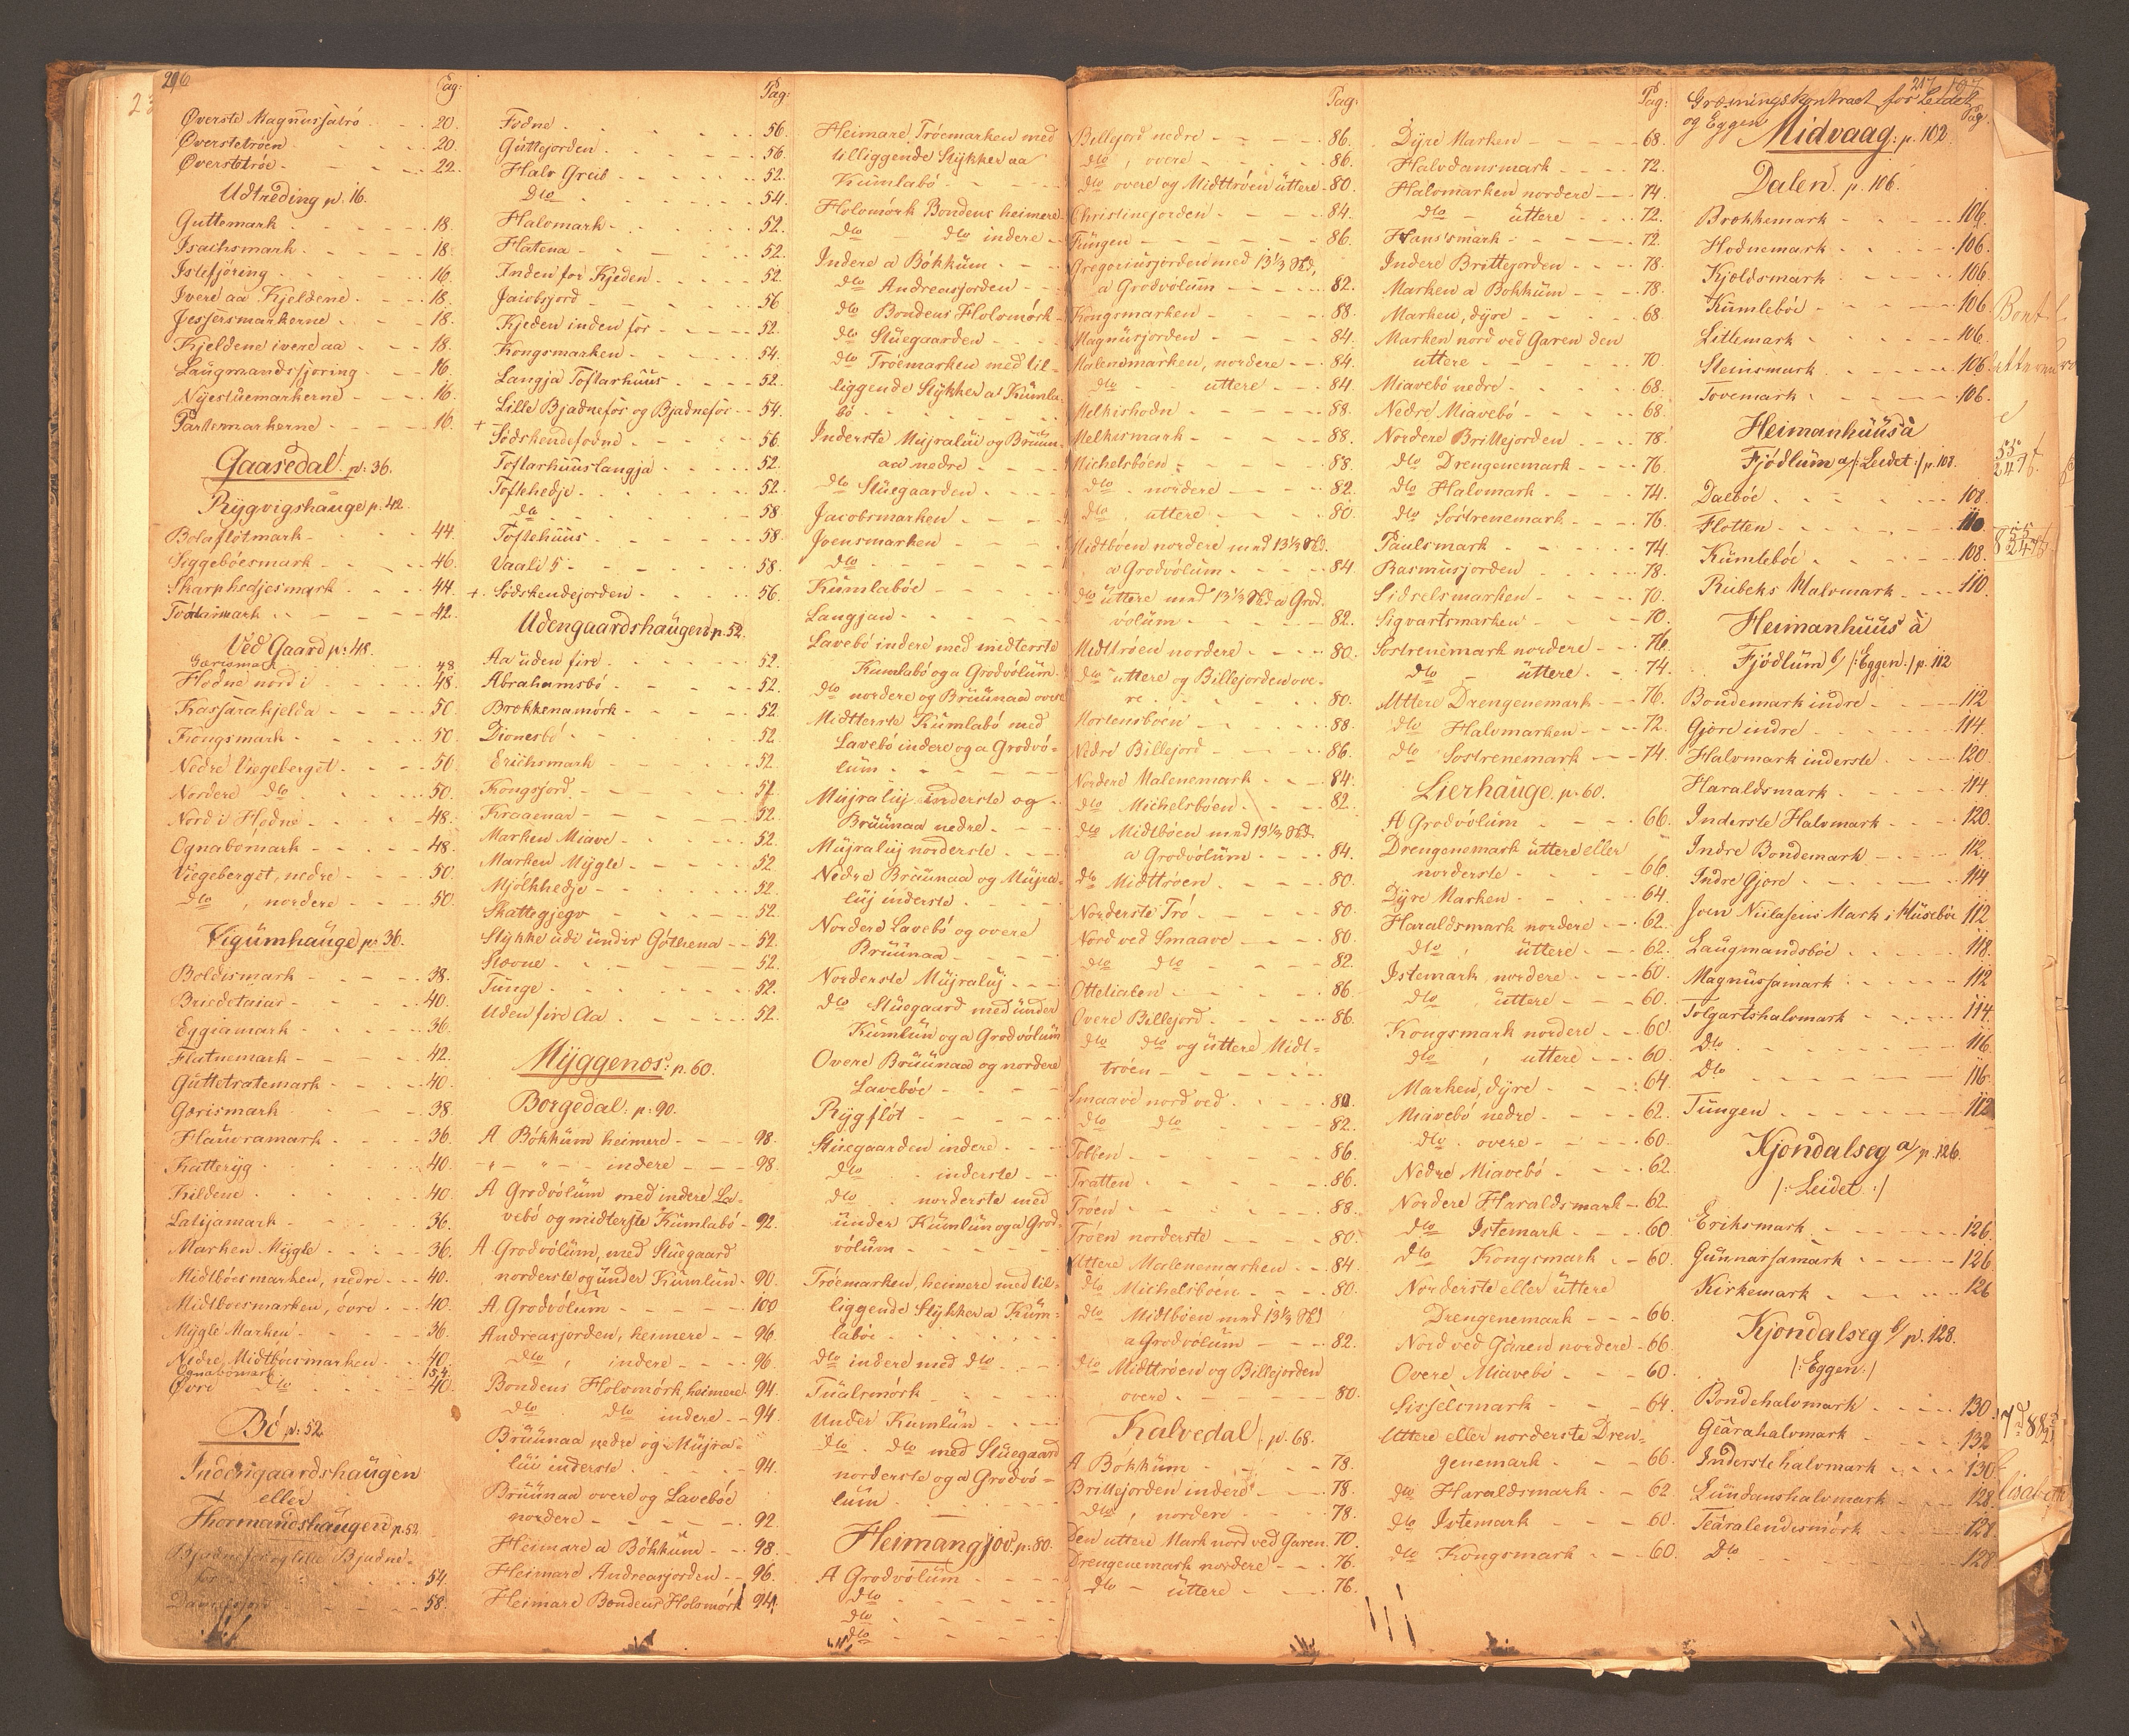 296
Pag:
Øverste Magnussatró - - 20.
Øverstetróen - - - - 20.
Øverstetróe - - - - 22.
Udtreding p. 16.
Guttemark - - - - 18.
Isachsmark - - - - 18.
Islefjóring - - - - 16.
Ivere aa Kjeldene - - 18.
Jessersmarkerne - - - 18.
Kjeldene ivere aa - - 18.
Laugmandsfjoring - - 16.
Nyestuemarkerne - - - 16.
Partemarkerne - - - - 16.
Gaasedal: p: 36.
Rygvigshauge p. 42.
Bolaflotmark - - - - 44.
Siggebóesmark - - - - 46.
Skarphedjesmark - - - 44.
42.
Ved Gaard p: 48.
Gærismark - - - 48
Hodne nord i - - - 48.
Kassarakjelda - - - 50.
Kongsmark - - - - 50.
Nedre Viegeberget - - - 50.
Nordere dto - - - - 50.
Nord i Hodne - - - - 48.
Ognabomark - - - - 48.
Viegeberget, nedre - - - 50.
dto , nordere - - - 50.
Vigumhauge p: 36.
Boldismark - - - - 38.
Briedetaiar - - - - 40.
Eggiamark - - - - 36.
Flatnemark - - - - 42.
Guttetratemark - - - 40.
Gærismark - - - - 38.
Hauvramark - - - - 36.
Katteryg - - - - 40.
Kildene - - - - 40.
Latijamark - - - - 36.
Marken Mygle - - - - 36.
Midtbóesmarken, nedre - - 40.
Midtboesmarken, óvre - - 40.
Mygle Marken - - - - 36.
Nedre Midtbóesmarken - - 40.
Ognabomark - - - 154.
Øvre dto - - - - 40.
Bó p: 52
Indengaardshaugen
eller
Thormandshaugen p. 52.
Bjadnefor og lille Bjadne-
for - - - - 54.
58.
Pag:
Fodne - - - - 56.
Guttejorden - - - - 56.
Halv Greib - - - - 52.
Dto - - - - 54.
Halvmark - - - - 52.
Flatena - - - - 52.
Inden for Kjeden - - - 52.
Jacobsjord - - - - 56
Kjeden inden for - - - 52.
Kongsmarken - - - - 54.
Langja Toftarhuus - - - 52.
Lille Bjadnefor og Bjadnefor - - 54.
+ Sódskendefodne - - - 56.
Toftarhuuslangja - - - 52.
Toftehedje - - - - 52.
dto - - - - 58.
Toftehuus - - - - 58.
Vaali 5 - - - - 58.
+. Sódskendejorden - - - 56.
Udengaardshaugen p. 52.
Aa uden fire - - - - 52.
Abrahamsbó - - - - 52.
Brokkenamórk - - - - 52.
Dionesbó - - - - 52.
Erichsmark - - - - 52.
Kongsjord - - - - 52.
Kraaenar - - - - 52.
Marken Miave - - - - 52.
Marken Mygle - - - - 52
Mjólkhedje - - - - 52.
Skattegjegv - - - - 52.
Stykke udi under Góthena - - 52.
Stovne - - - - 52.
Tunge - - - - 52.
Uden fire Aa - - - - 52.
Myggenos: p. 60.
Borgedal: p: 90.
A Bókkum heimere - - - 98.
- " - " - indere - - - 98.
A Grodvólum med indere La-
vebó og midterste Kumlabó - 92.
A Grodvólum, med Stuegaard
norderste og under Kumlun - 90.
A. Grodvólum - - - - 100
Andreasjorden, heimere - - 96.
dto , indere - - - 96.
Bondens Holomórk, heimere 94.
dto dto indere - - 94.
Bruunaa nedre og Mujra-
luv inderste - - - - 94.
Bruunaa overe og Lavebóe
nordere - - - - 92.
Heimare a Bókkum - - 98.
Heimare Andreasjorden - - 96.
Heimare Bondens Holomórk 94.
Heimare Tróemarken med
tilliggende Stykker aa
Kumlabó - - - -
Holomórk Bondens heimere
dto - dto indere - -
Indere a Bókkum - - -
dto Andreasjorden - -
dto Bondens Holomórk -
dto Stuegaarden - - -
dto Tróemarken med til-
liggende Stykker a Kumla-
bó - - - -
Inderste Mujraluv og Bruun-
aa nedre - - - -
dto Stuegaarden - - -
Jacobsmarken - - - -
Joensmarken - - - -
dto - - - -
Kumlabóe - - - -
Langjan - - - -
Lavebó indere med midterste
Kumlabó og a Grodvólum -
dto nordere og Bruunaa overe
Midterste Kumlabó med
Lavebó indere og a Grodvó-
lum - - - -
Mujraluj inderste og -
Bruunaa nedre - - -
Mujraluj norderste - - -
Nedre Bruunaa og Mujra-
luj inderste - - - -
Nordere Lavebó og overe
Bruunaa - - - -
Norderste Mujraluj - - -
dto Stuegaard med under
Kumlun og a Grodvólum
Overe Bruunaa og nordere
Lavebóe - - - -
Rygflót - - - -
Stuegaarden indere - - -
dto inderste - - -
dto norderste med
under Kumlun og a Grod-
vólum - - - -
Tróemarken, heimere med til-
liggende Stykker a Kum-
labóe - - - -
dto indere med dto - - -
Tualsmórk - - - -
Under Kumlun - - - -
dto . dto med Stuegaard
norderste og a Grodvó-
lum - - - -
Heimangjov. p: 80.
A Grodvólum - - - -
dto - - - -
dto - - - -
dto - - - -
Pag:
Billejord nedre - - - 86.
dto , overe - - - 86.
dto overe og Midttróen uttere - 80.
Christinejorden - - - 84.
Fungen - - - - 86.
Gregoriusjorden med 13⅓ Skd,
a Grodvólum - - - - 82.
Kongsmarken - - - - 88.
Magnusjorden - - - - 84.
Malenemarken, nordere - - 84.
dto - uttere - - - 84.
Melkishodn - - - - 88.
Melkismark - - - - 88.
Michelsbóen - - - - 88.
dto . nordere - - - 82.
dto , uttere - - - 80.
Midtbóen nordere med 13⅓ Skd.
a Grodvólum - - - - 84.
dto uttere med 13⅓ Skd a Grod-
vólum - - - - 82.
Midttróen nordere - - - 80.
dto uttere og Billejorden ove-
re - - - - 80.
Mortensbóen - - - - 88.
Nedre Billejord - - - 86.
Nordere Malenemark - - 84.
dto Michelsbóen - - - 82.
dto Midtbóen med 13⅓ Skd.
a Grodvólum - - - 84.
dto Midttróen - - - 80.
Norderste Tró - - - 80.
Nord ved Smaave - - - 80.
dto dto - - - 82.
Otteliaten - - - - 86.
Overe Billejord - - - 86.
dto dto og uttere Midt-
tróen - - - -
Smaave nord ved - - - 80.
dto dto - - - 82.
Tobben - - - - 86.
Tratten - - - - 86.
Tróen - - - - 88.
Tróen norderste - - - 80.
Uttere Malenemarken - - 84.
dto Michelsbóen - - - 80.
dto Midtbóen med 13⅓ Skd
a Grodvólum - - - 82.
dto Midttróen og Billejorden
overe - - - - 80.
Kalvedal p. 68.
A Bókkum - - - - 78.
Brittejorden indere - - - 78.
dto , nordere - - - 78.
Den uttere Mark nord ved Garen. 70.
Drengenemark nordere - - 76.
dto - uttere - - - 76.
Pag:
Dyre Marken - - - 68.
Halvdansmark - - - 72.
Halvmarken nordere - - 74.
dto - uttere - - - 72.
Hans'smark - - - - 72.
Indere Brittejorden - - - 78.
Marken a Bokkum - - - 78.
Marken, dyre - - - - 68.
Marken nord ved Garen den
uttere - - - - 70.
Miavebó nedre - - - 68.
Nedre Miavebó - - - 68.
Nordere Brittejorden - - - 78.
dto Drengenemark - - - 76.
dto Halvmark - - - 74.
dto Sóstrenemark - - - 76.
Paulsmark - - - - 74.
Rasmusjorden - - - 78.
Sidselsmarken - - - 70.
Sigvartsmarken - - - 70.
Sostrenemark nordere - - 76.
dto - uttere - - 74.
Uttere Drengenemark - - 76.
dto Halvmarken - - - 72.
dto Sostrenemark - - - 74.
Lierhauge. p. 60.
A Grodvólum - - - 66.
Drengenemark uttere eller
norderste - - - - 66.
Dyre Marken - - - 64.
Haraldsmark nordere - - 62.
dto , uttere - - - 62.
Istemark, nordere - - - 60.
dto , uttere - - - 60.
Kongsmark nordere - - - 60.
dto , uttere - - - 60.
Marken, dyre - - - 64.
Miavebó nedre - - - 62.
dto . overe - - - 60.
Nedre Miavebó - - - 62.
Nordere Haraldsmark - - 62.
dto Istemark - - - 60.
dto Kongsmark - - 60.
Norderste eller uttere
Drengenemark - - - 66.
Nord ved Garen nordere - 66.
Overe Miavebó - - - 60.
Sisselsmark - - - 64.
Uttere eller norderste Dren-
genemark - - - - 66.
dto Haraldsmark - - 62.
dto Istemark - - - 60.
dto Kongsmark - - - 60.
217
Græsningskontract for Leidet
og Eggen
Pag.
Midvaag: p. 102.
Dalen p. 106.
Brokkemark - - - - 106.
Hodnemark - - - - 106.
Kjoldsmark - - - - 106.
Kumlebóe - - - - 106.
Litlemark - - - - 106.
Steinsmark - - - - 106.
Tovemark - - - - 106.
Heimanhuus à
Fjódlum a/ /: Leidet :/ p. 108.
Dalbóe - - - - 108.
Flotten - - - - 110
Kumlebóe - - - - 108.
Rubeks Halvmark - - - 110.
Heimanhuus à
Fjódlum b/ /: Eggen :/ p. 112
Bondemark indre - - - 112
Gjore indre - - - - 114.
Halvmark inderste - - - 120.
Haraldsmark - - - - 114.
Inderste Halvmark - - - 120.
Indre Bondemark - - - 112.
Indre Gjore - - - - 114
Joen Nielasens Mark i Husebóe 112
Laugmandsbóe - - - - 118.
Magnussamark - - - - 112
Tolgartshalvmark - - - 114.
Dto - - - - 116.
Dto - - - - 116.
Tungen - - - - 112
Kjondalseg a/ p. 126.
/: Leidet :/
Eriksmark - - - - 126.
Gunnarsamark - - - - 126.
Kirkemark - - - - 126
Kjondalseg b/ p. 128.
/: Eggen :/
Bondehalvmark - - - - 130.
Gearahalvmark - - - - 132
Inderstehalvmark - - - 130
Lundanshalvmark - - - 128.
Tearalendismórk - - - 128.
Dto - - - - 128